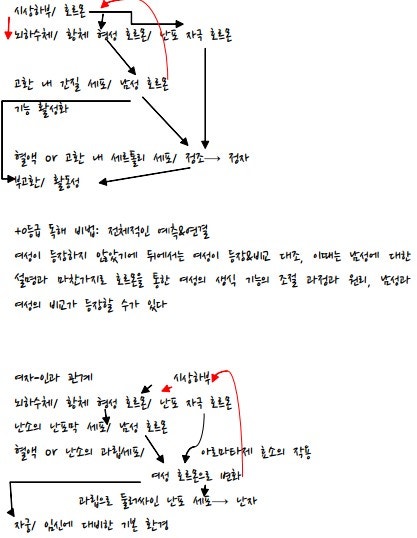 시상하부/ 호르몬
뇌하수체/ 황체 형성 호르몬/ 난포 자극 호르몬
고환 내 간질 세포/ 남성 호르몬
기능 활성화
혈액 or 고환 내 세르톨리 세포/ 정조→ 정자
부고환/ 활동성
+0등급 독해 비법: 전체적인 예측&연결
여성이 등장하지 않았기에 뒤에서는 여성이 등장&비교 대조, 이때는 남성에 대한
설명과 마찬가지로 호르몬을 통한 여성의 생식 기능의 조절 과정과 원리, 남성과
여성의 비교가 등장할 수가 있다
여자-인과 관계
시상하부
뇌하수체/ 황체 형성 호르몬/ 난포 자극 호르몬
난소의 난포막 세포/ 남성 호르몬
혈액 or 난소의 과립세포/ 아로마타제 효소의 작용
여성 호르몬으로 변화
과립으로 둘러싸인 난포 세포→ 난자
자궁/ 임신에 대비한 기본 환경